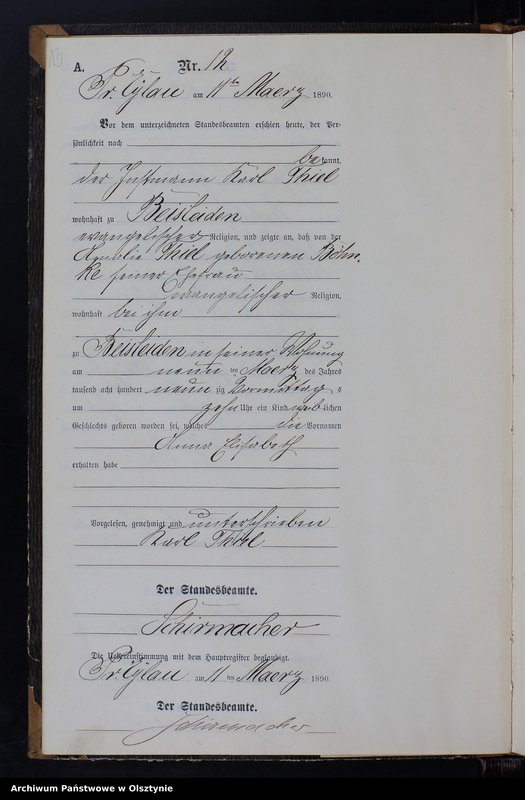 13
A.
Nr. 12.
Pr. Eylau am 11ten Maerz 1890.
Vor dem unterzeichneten Standesbeamten erschien heute, der Per-
sönlichkeit nach
bekannt,
der Instmann Karl Thiel
wohnhaft zu Beisleiden
evangelischer Religion, und zeigte an, daß von der
Amalie Thiel geborenen Böhn-
ke seiner Ehefrau
evangelischer Religion,
wohnhaft bei ihm
zu Beisleiden in seiner Wohnung
am neun ten Maerz des Jahres
tausend acht hundert neun zig Vormittag s
um zehn Uhr ein Kind weiblichen
Geschlechts geboren worden sei, welches die Vornamen
Anna Elisabeth
erhalten habe
Vorgelesen, genehmigt und unterschrieben
Karl Thiel
Der Standesbeamte.
Schirmacher
Die Uebereinstimmung mit dem Hauptregister beglaubigt.
Pr. Eylau am 11 ten Maerz 1890.
Der Standesbeamte.
Schirmacher
Archiwum Państwowe w Olsztynie